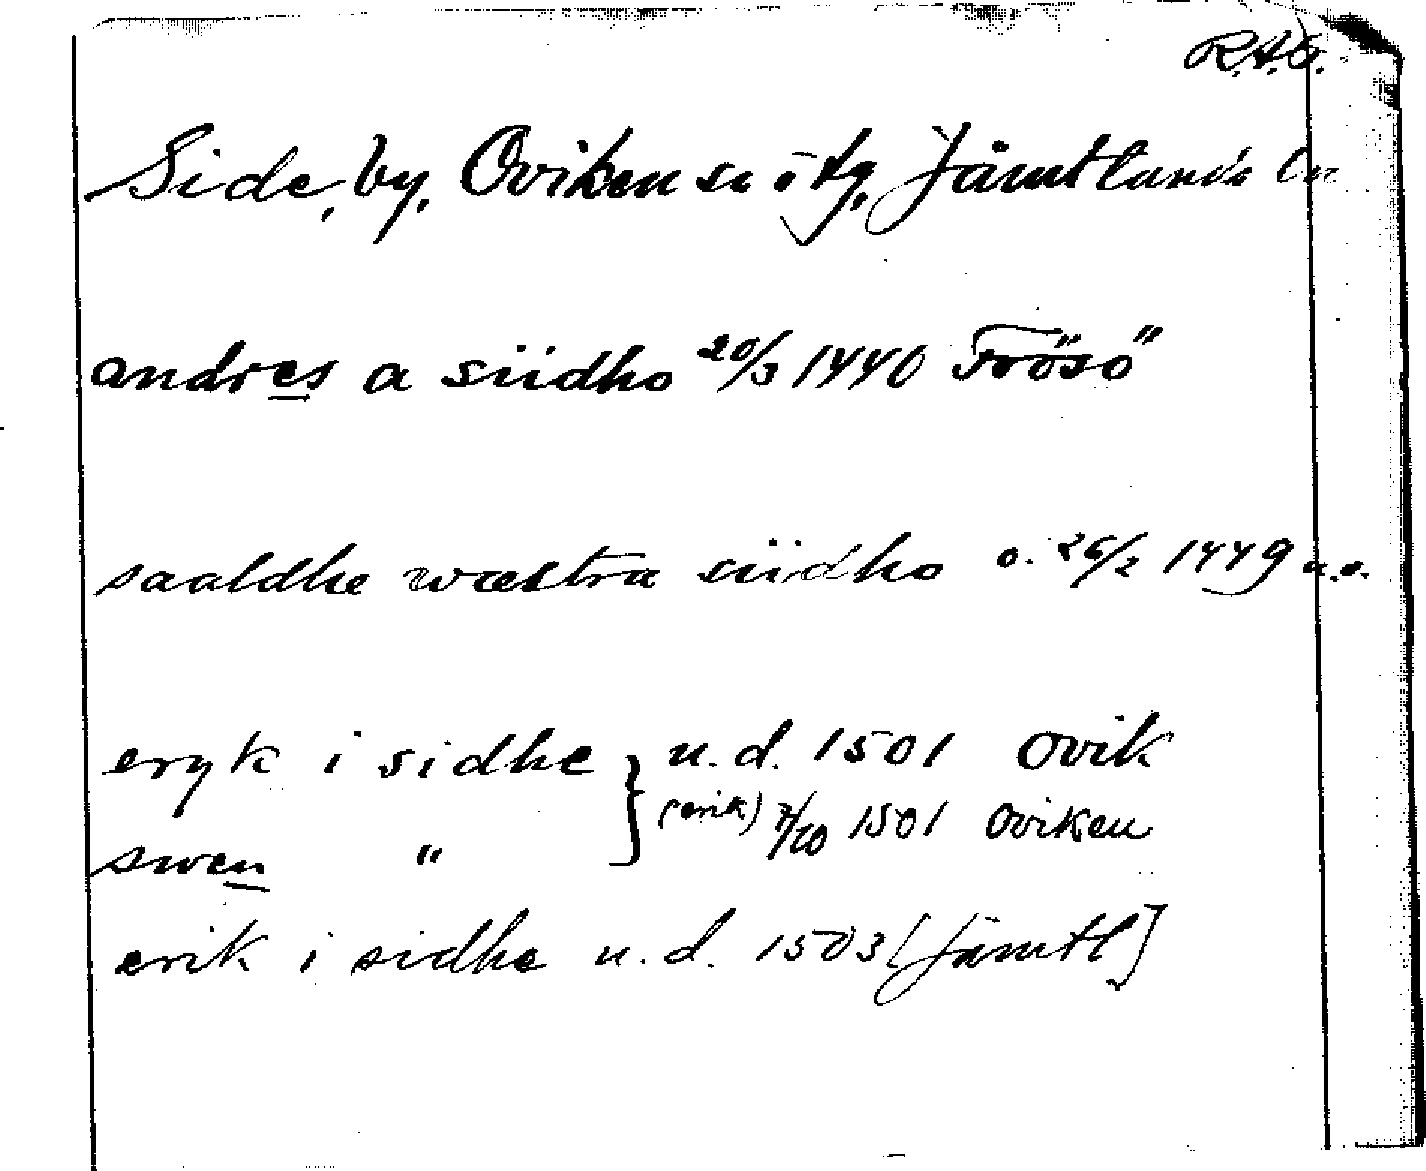 R.A.
Side, by, Oviken sn o tg, Jämtlands ln
andres a siidho 20/3 1440 Frösö
saaldhe wæstra siidho o. 26/2 1449 u.o.
eryk i sidhe } u.d. 1501 Ovik
(erik) 7/10 1501 Oviken
swen "
erik i sidhe u.d. 1503 [Jämtl]